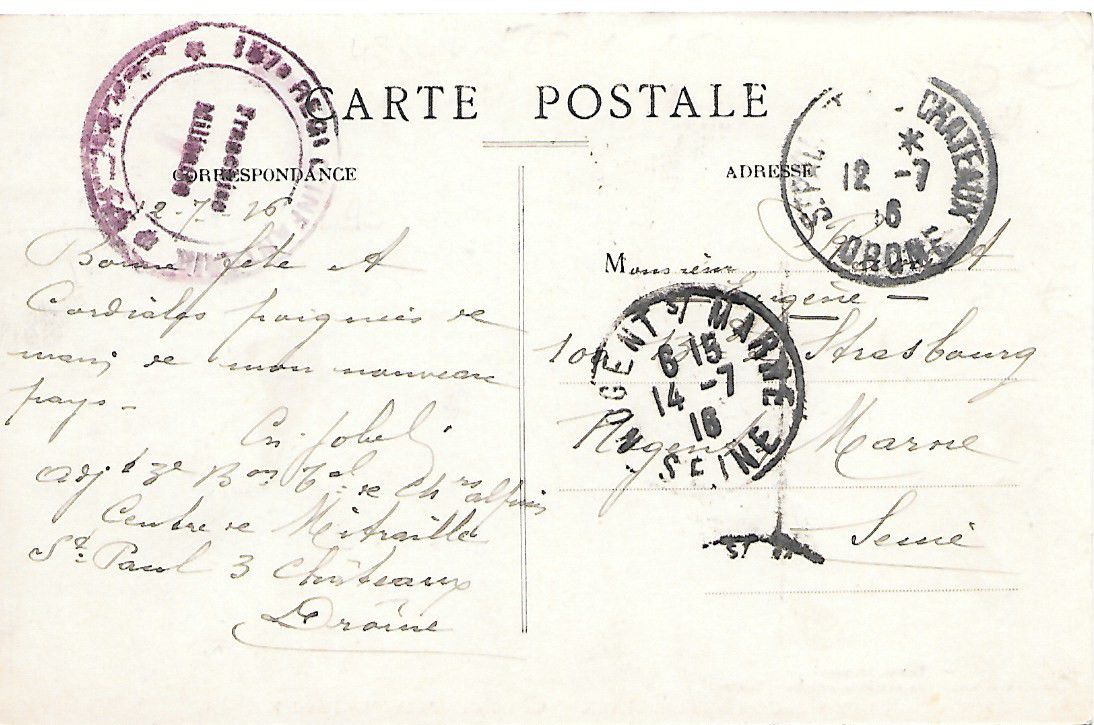 157e REGI D'INFANTERIE
Franchise
Militaire
CARTE POSTALE
CORRESPONDANCE
12-7-16
Bonne fête et
Cordiales poignées de
main de mon nouveau
pays-
Adjt 3e Bon Tal de Chrs alpins
Centre de Mitraille
St Paul 3 Châteaux
Drôme
ADRESSE
ST PAUL CHATEAUX
12 -7
16
DROME
Monsieur
Eugène -
NOGENT S/ MARNE
6 15
14 -7
16
SEINE
Strasbourg
Nogent Marne
Seine